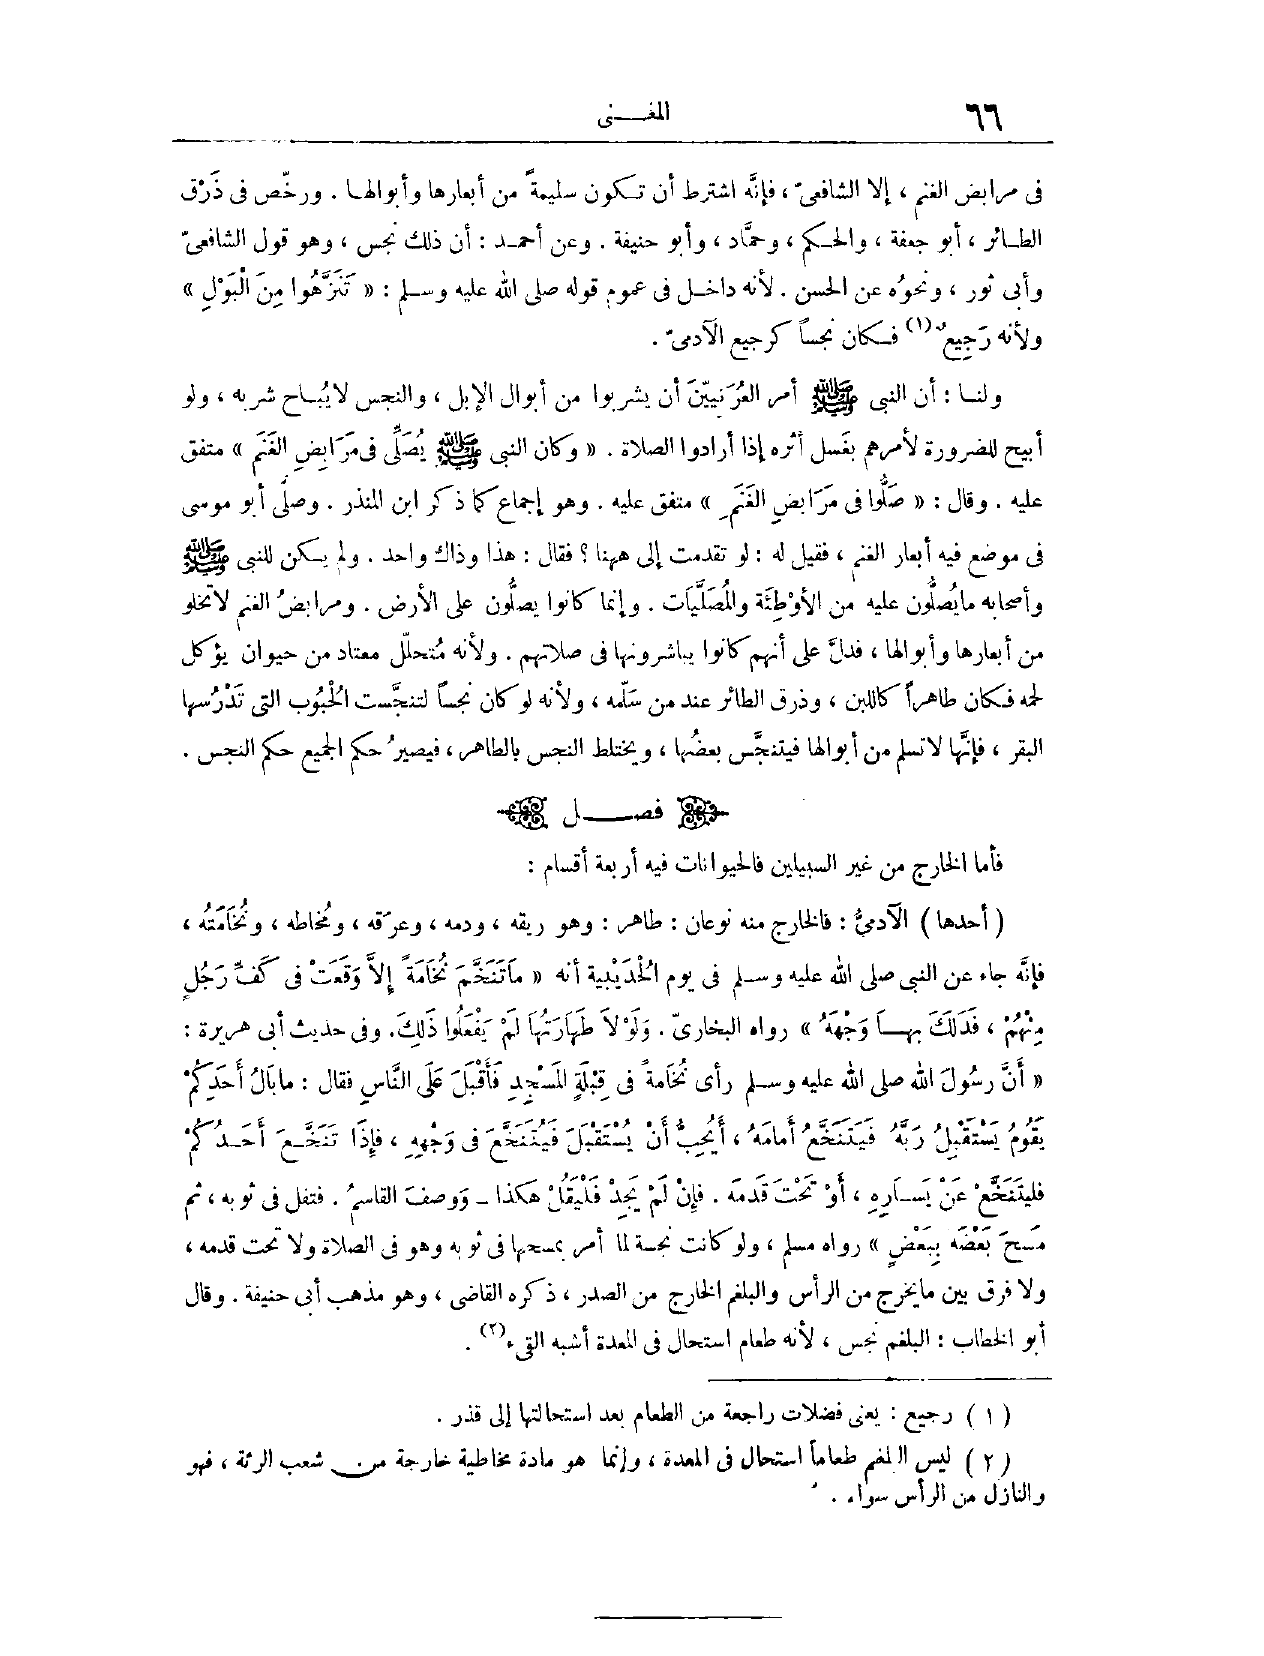 ٦٦ المغـــنى
فى مرابض الغنم ، إلا الشافعىّ ، فإنَّه اشترط أن تكون سليمةً من أبعارها وأبوالها . ورخّص فى ذَرْق
الطائر ، أبو جعفة ، والحكم ، وحمَّاد ، وأبو حنيفة . وعن أحمد : أن ذلك نجس ، وهو قول الشافعىّ
وأبى ثور ، ونحوُه عن الحسن . لأنه داخل فى عموم قوله صلى الله عليه وسلم : « تَنَزَّهُوا مِنَ الْبَوْلِ »
ولأنه رَجِيعٌ (١) فكان نجساً كرجيع الآدمىّ .
ولنا : أن النبى ﷺ أمر العُرَنيِّينَ أن يشربوا من أبوال الإبل ، والنجس لا يُباح شربه ، ولو
أبيح للضرورة لأمرهم بغَسل أثره إذا أرادوا الصلاة . « وكان النبى ﷺ يُصَلِّى فى مَرَابِضِ الغَنَم » متفق
عليه . وقال : « صَلُّوا فى مَرَابضِ الغَنَمِ » متفق عليه . وهو إجماع كما ذكر ابن المنذر . وصلَّى أبو موسى
فى موضع فيه أبعار الغنم ، فقيل له : لو تقدمت إلى ههنا ؟ فقال : هذا وذاك واحد . ولم يكن للنبى ﷺ
وأصحابه مايُصلُّون عليه من الأوْطِئَة والمُصَلَّيَات . وإنما كانوا يصلُّون على الأرض . ومرابضُ الغنم لاتخلو
من أبعارها وأبوالها ، فدلَّ على أنهم كانوا يباشرونها فى صلاتهم . ولأنه مُتحلّل معتاد من حيوان يؤكل
لحمه فكان طاهراً كاللبن ، وذرق الطائر عند من سَلّمه ، ولأنه لو كان نجساً لتنجَّست الحُبُوب التى تَدْرُسها
البقر ، فإنَّها لا تسلم من أبوالها فيتنجَّس بعضُها ، ويختلط النجس بالطاهر ، فيصيرُ حكم الجميع حكم النجس .
فصــــل
فأما الخارج من غير السبيلين فالحيوانات فيه أربعة أقسام :
( أحدها ) الآدمىُّ : فالخارج منه نوعان : طاهر : وهو ريقه ، ودمه ، وعرَقه ، ومُخاطه ، ونُخَامَتُه ،
فإنَّه جاء عن النبى صلى الله عليه وسلم فى يوم الحُدَيْبِية أنه « مَاتَنَخَّمَ نُخَامَةً إِلاَّ وَقَعَتْ فى كَفِّ رَجُلٍ
مِنْهُمْ ، فَدَلَكَ بها وَجْهَهُ » رواه البخارىّ . وَلَوْلاَ طَهَارَتُهَا لَمْ يَفْعَلُوا ذَلِكَ. وفى حديث أبى هريرة :
« أَنَّ رسُولَ الله صلى الله عليه وسلم رأى نُخَامةً فى قِبْلَةِ المَسْجِدِ فَأَقْبَلَ عَلَى النَّاسِ فقال : مابَالُ أَحَدِكُمْ
يَقُومُ يَسْتَقْبِلُ رَبَّهُ فَيَتَنَخَّعُ أَمامَهُ ، أَيُحِبُّ أَنْ يُسْتَقْبَلَ فَيُتَنَخَّعَ فى وَجْهِهِ ، فإِذَا تَنَخَّعَ أَحَدُكُمْ
فليَتَنَخَّعْ عَنْ يَسَارِهِ ، أَوْ تَحْتَ قَدمَه . فإِنْ لَمْ يَجِدْ فَلْيَقُلْ هكذا ــ وَوصفَ القاسمُ . فتفل فى ثوبه ، ثم
مَسَحَ بَعْضَه بِبَعْضٍ » رواه مسلم ، ولو كانت نجسة لما أمر بمسحها فى ثوبه وهو فى الصلاة ولا تحت قدمه ،
ولا فرق بين مايخرج من الرأس والبلغم الخارج من الصدر ، ذكره القاضى ، وهو مذهب أبى حنيفة . وقال
أبو الخطاب : البلغم نجس ، لأنه طعام استحال فى المعدة أشبه القىء (٢) .
( ١ ) رجيع : يعنى فضلات راجعة من الطعام بعد استحالتها إلى قذر .
( ٢ ) ليس البلغم طعاماً استحال فى المعدة ، وإنما هو مادة مخاطية خارجة من شعب الرئة ، فهو
والنازل من الرأس سواء .